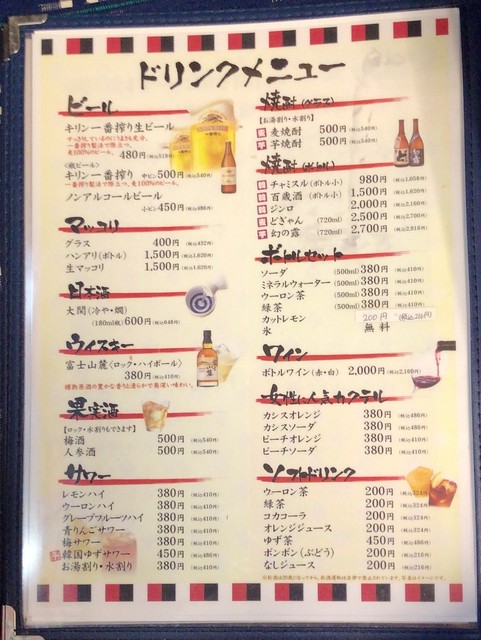 ドリンクメニュー
ビール
キリン一番搾り生ビール
480円(税込518円)
<瓶ビール>
キリン一番搾り 中ビン500円(税込540円)
一番搾り製法で際立つ、麦100%のビール。
ノンアルコールビール
小ビン450円(税込486円)
マッコリ
グラス 400円(税込432円)
ハンアリ(ボトル) 1,500円(税込1,620円)
生マッコリ 1,500円(税込1,620円)
日本酒
大関(冷や・燗)
(180ml瓶)600円(税込648円)
ウイスキー
富士山麓<ロック・ハイボール>
380円(税込410円)
樽熟原酒の豊かな香りと濃らかで奥深い味わい。
果実酒
【ロック・水割りもできます】
梅酒 500円(税込540円)
人参酒 500円(税込540円)
サワー
レモンハイ 380円(税込410円)
ウーロンハイ 380円(税込410円)
グレープフルーツハイ 380円(税込410円)
青りんごサワー 380円(税込410円)
梅サワー 380円(税込410円)
韓国ゆずサワー 450円(税込486円)
お湯割り・水割り 380円(税込410円)
焼酎(グラス)
【お湯割り・水割り】
麦 麦焼酎 500円(税込540円)
芋 芋焼酎 500円(税込540円)
焼酎(ボトル)
韓 チャミスル(ボトル小) 980円(税込1,058円)
韓 百歳酒(ボトル小) 1,500円
韓 ジンロ 2,000円(税込2,160円)
麦 どぎゃん (720ml) 2,500円(税込2,700円)
芋 幻の露 (720ml) 2,700円(税込2,916円)
ボトルセット
ソーダ (500ml)380円(税込410円)
ミネラルウォーター (500ml)380円(税込410円)
ウーロン茶 (500ml)380円(税込410円)
緑茶 (500ml)380円(税込410円)
カットレモン 200円 (税込216円)
氷 無料
ワイン
ボトルワイン(赤・白) 2,000円(税込2,160円)
女性に人気カクテル
カシスオレンジ 380円(税込486円)
カシスソーダ 380円(税込486円)
ピーチオレンジ 380円(税込486円)
ピーチソーダ 380円(税込486円)
ソフトドリンク
ウーロン茶 200円(税込324円)
緑茶 200円(税込324円)
コカコーラ 200円(税込324円)
オレンジジュース 200円(税込324円)
ゆず茶 450円(税込486円)
ポンポン(ぶどう) 200円(税込216円)
なしジュース 200円(税込216円)
※お酒は20歳になってから。飲酒運転は法律で禁止されています。写真はイメージです。